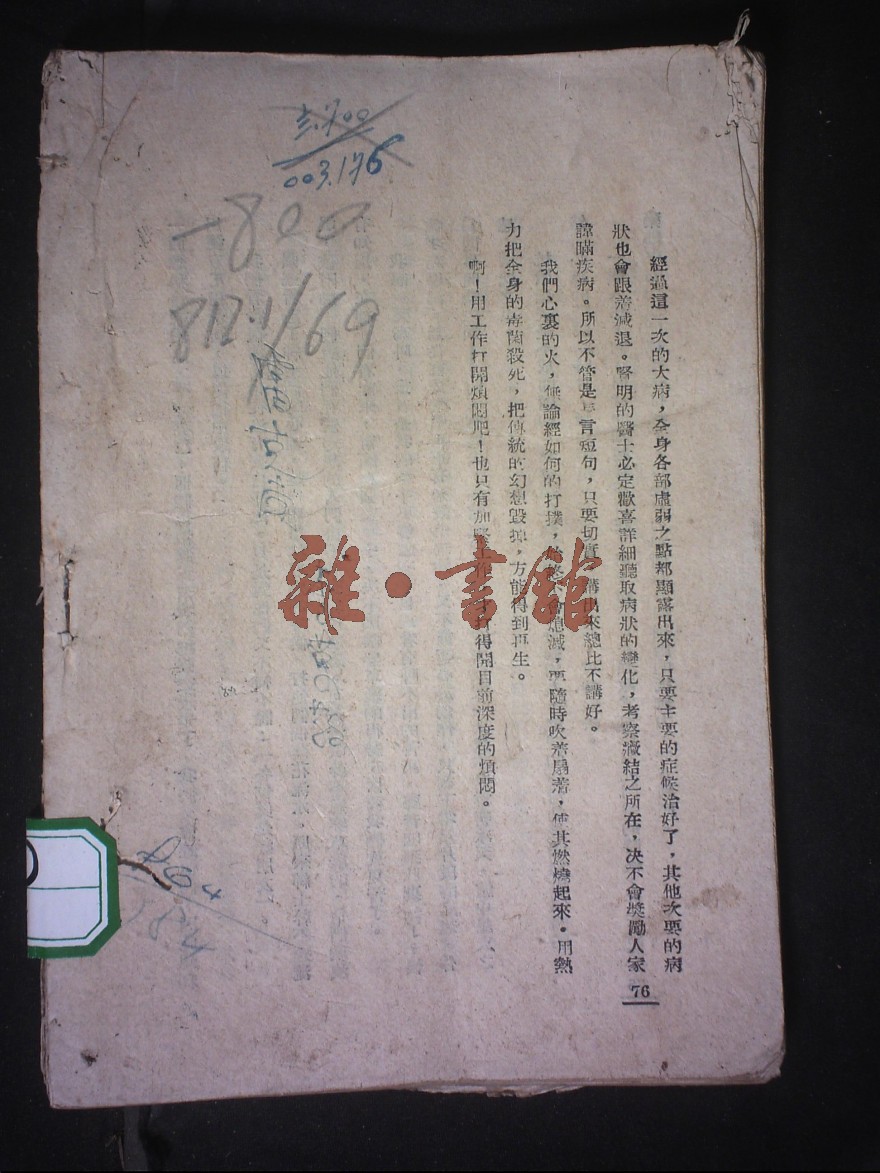 經過這一次的大病，全身各部虛弱之點都顯露出來，只要主要的症候治好了，其他次要的病
狀也會跟着減退。賢明的醫士必定歡喜詳細聽取病狀的變化，考察癥結之所在，决不會獎勵人家
諱瞞疾病。所以不管是言短句，只要切實，講出來總比不講好。
我們心裏的火，無論經如何的打撲，始終會熄滅，要隨時吹着扇着，使其燃燒起來。用熱
力把全身的毒菌殺死，把傳統的幻想毀掉，方能得到再生。
啊！用工作打開煩悶吧！也只有加緊工作，打得開目前深度的煩悶。
76
003.176
800
812.1/69
雜·書館